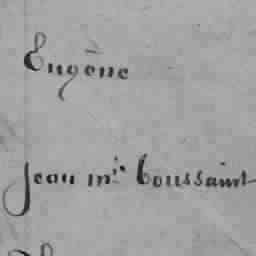 Eugène
Jean m.ie Toussaint